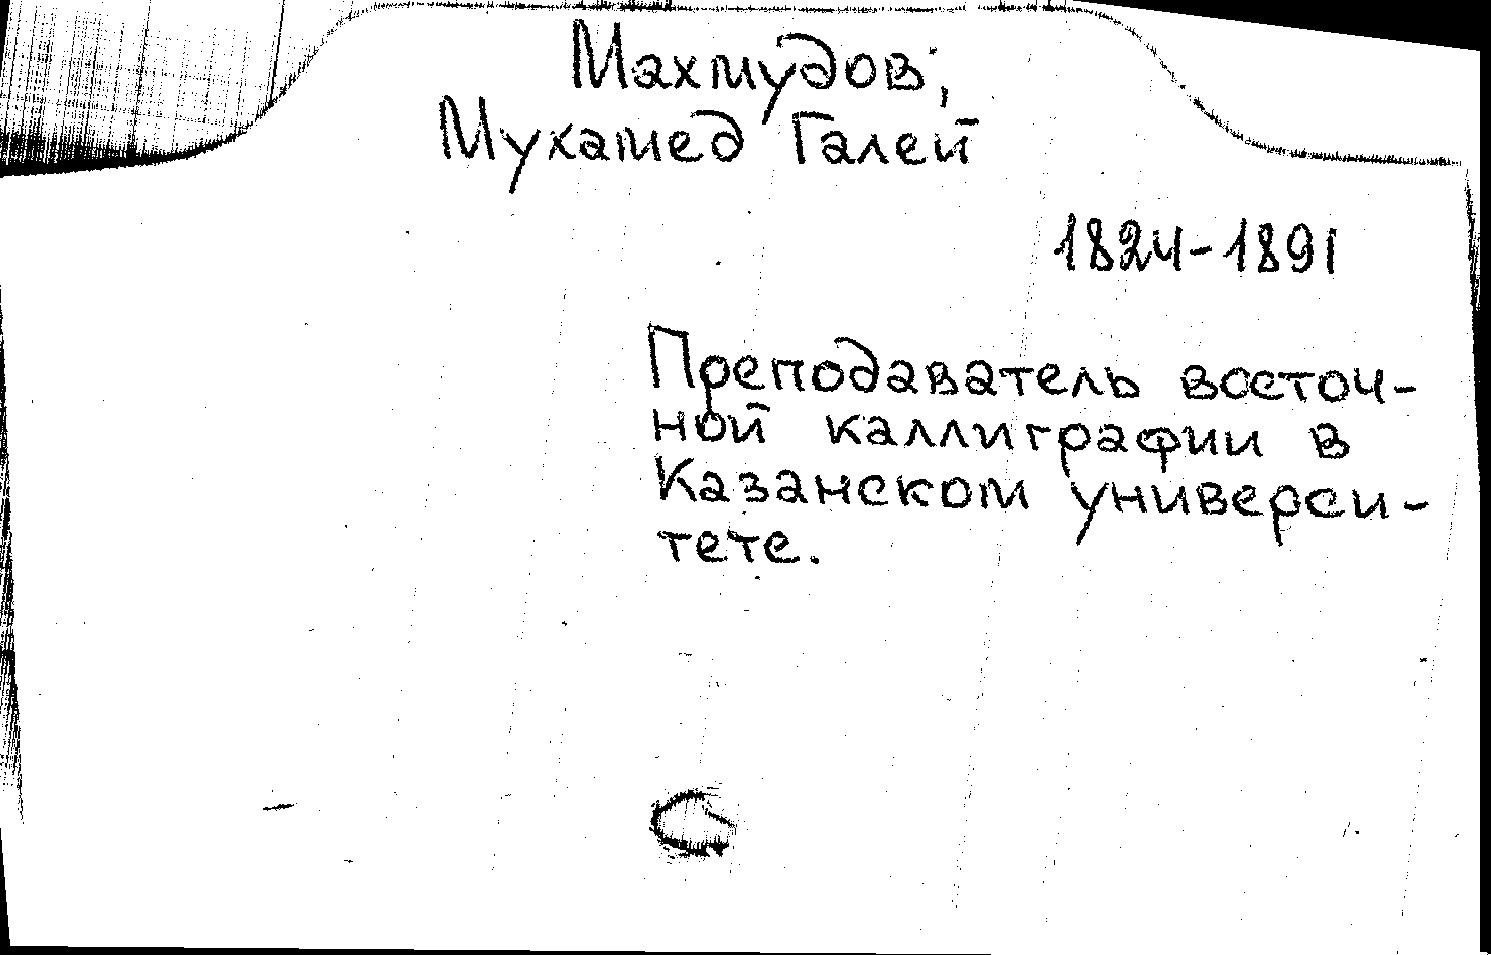 Махмудов,
Мухамед Галей
1824-1891
Преподаватель восточ-
ной каллиграфии в
Казанском универси-
тете.